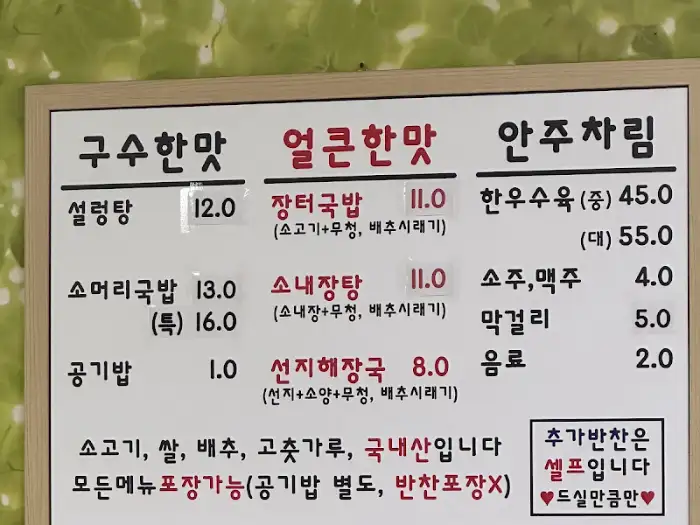 구수한맛
설렁탕 12.0
소머리국밥 13.0
(특) 16.0
공기밥 1.0
얼큰한맛
장터국밥 11.0
(소고기+무청, 배추시래기)
소내장탕 11.0
(소내장+무청, 배추시래기)
선지해장국 8.0
(선지+소양+무청, 배추시래기)
안주차림
한우수육 (중) 45.0
(대) 55.0
소주,맥주 4.0
막걸리 5.0
음료 2.0
소고기, 쌀, 배추, 고춧가루, 국내산입니다
모든메뉴포장가능(공기밥 별도, 반찬포장X)
추가반찬은
셀프입니다
♥드실만큼만♥